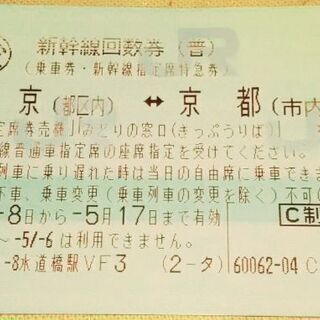 新幹線回数券(普)
(乗車券・新幹線指定席特急券)
京(都区内) ↔ 京 都(市内
定席券売機」「みどりの窓口(きっぷうりば)
線普通車指定席の座席指定を受けてください。
列車に乗り遅れた時は当日の自由席に乗車できま
下車、乗車変更(乗車列車の変更を除く)不可
-8日から-5月17日まで有効
C制
~-5/-6は利用できません。
-8水道橋駅VF3 (2-タ) 60062-04 C